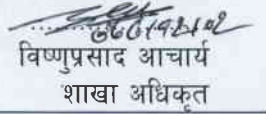 विष्णुप्रसाद आचार्य
शाखा अधिकृत